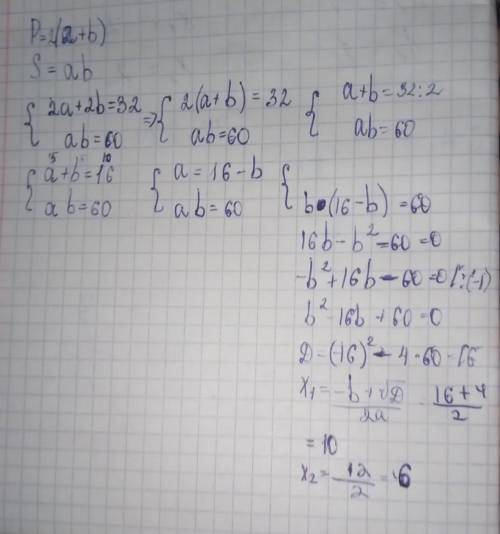 P=2(a+b)
S=ab
{ 2a+2b=32 ab=60 => { 2(a+b)=32 ab=60 { a+b=32:2 ab=60
{ a+b=16 ab=60 { a=16-b ab=60 { b•(16-b)=60
16b-b²-60=0
-b²+16b-60=0 |:(-1)
b²-16b+60=0
D=(-16)²-4·60=16
x₁=(-b+√D)/2a = (16+4)/2
=10
x₂=12/2=6